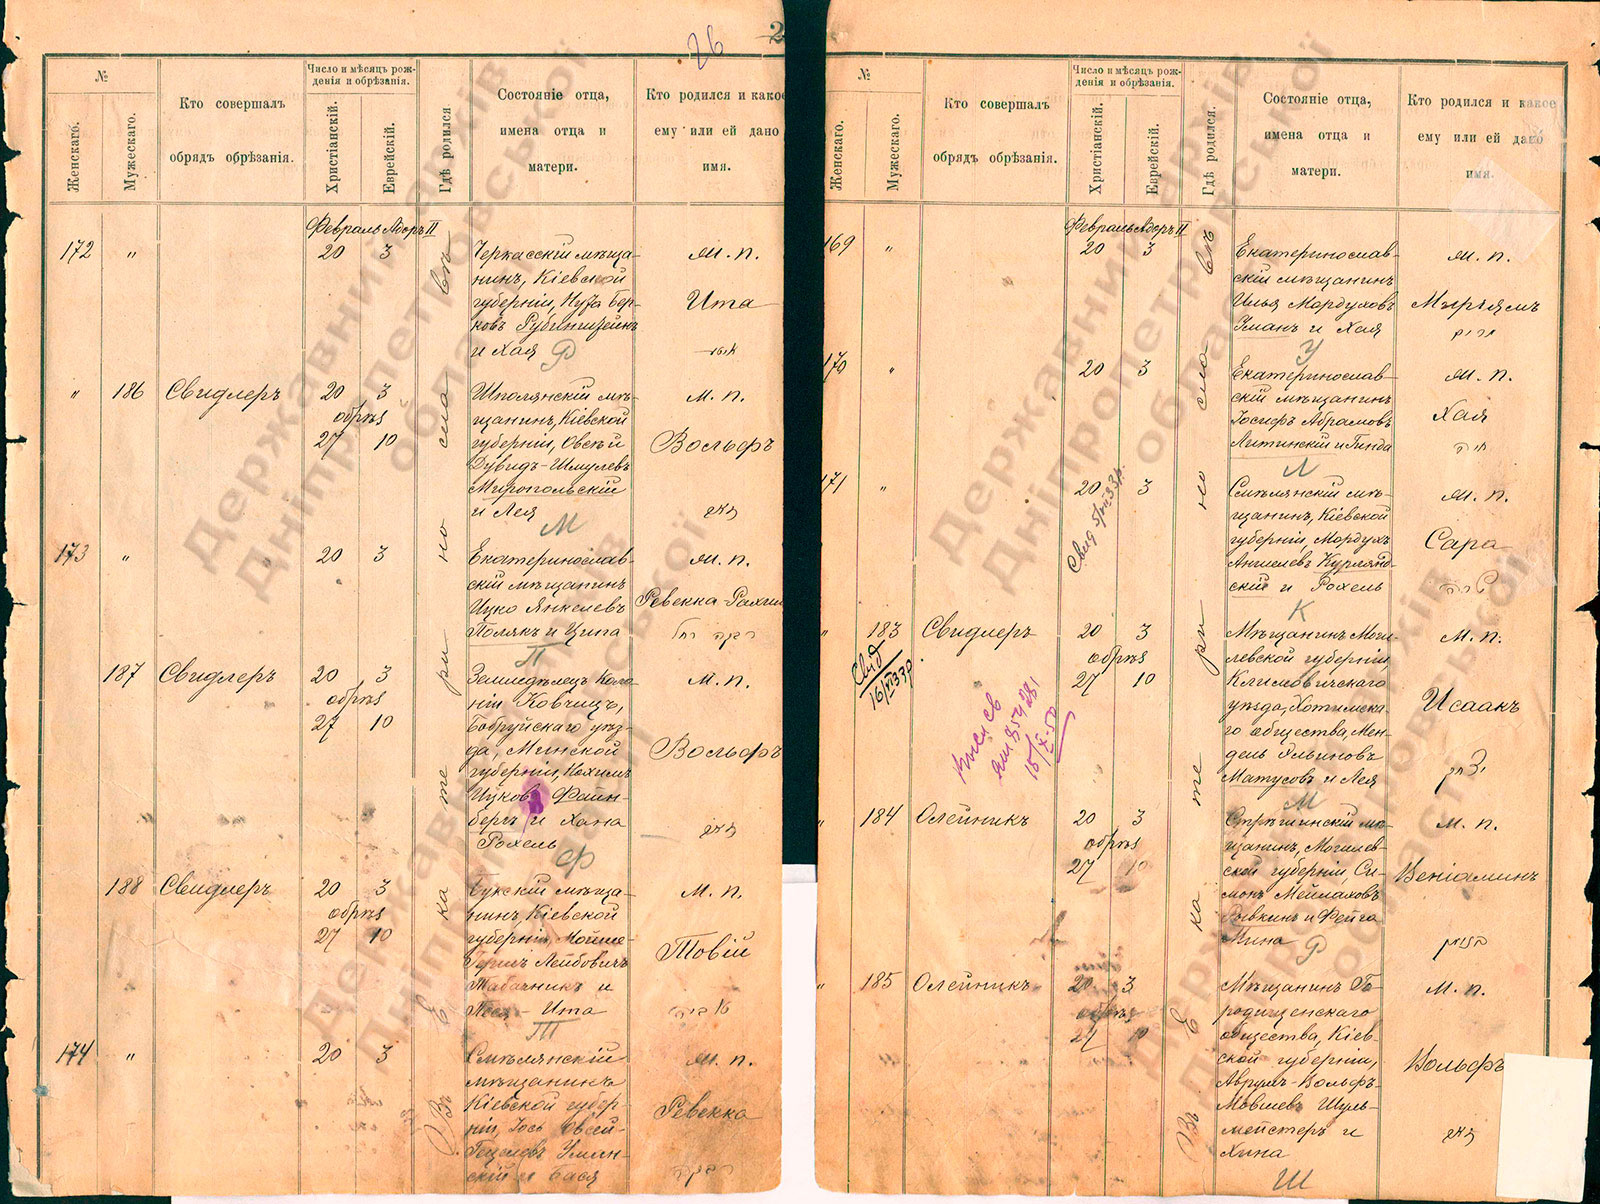 26
2
№
Женскаго.
Мужескаго.
Кто совершалъ
обрядъ обрѣзанія.
Число и мѣсяцъ рож-
денія и обрѣзанія.
Христіанскій.
Еврейскій.
Гдѣ родился
Состояніе отца,
имена отца и
матери.
Кто родился и какое
ему или ей дано
имя.
Февраль Адоръ II
Въ Екатеринославѣ
172 „ 20 3
Черкасскій мѣща-
нинъ, Кіевской
губерніи, Нута Бер-
ковъ Рубинштейнъ
и Хая
Р
м. п.
Ита
„ 186 Свидлеръ 20 3
обрѣз
27 10
Шполянскій мѣ-
щанинъ, Кіевской
губерніи, Овсѣй
Дувидъ-Шмулевъ
Миропольскій
и Лея
М
м. п.
Вольфъ
173 „ 20 3
Екатеринослав-
скій мѣщанинъ
Ицко Янкелевъ
Полякъ и Ципа
П
м. п.
Ревекка-Рахиль
רבקה רחל
187 Свидлеръ 20 3
обрѣз
27 10
Земледѣлецъ Коло-
ніи Ковчицъ,
Бобруйскаго уѣз-
да, Минской
губерніи, Нохимъ
Ицковъ Файн-
бергъ и Хана
Рохель
Ф
м. п.
Вольфъ
188 Свидлеръ 20 3
обрѣз
27 10
Букскій мѣща-
нинъ, Кіевской
губерніи, Мойше
Гершъ Лейбовичъ
Табачникъ и
Песя - Ита
Т
м. п.
Товій
174 „ 20 3
Смѣлянскій
мѣщанинъ
Кіевской губер-
ніи, Іось Овсей-
Гецелевъ Уман-
скій и Бася
м. п.
Ревекка
רבקה
№
Женскаго.
Мужескаго.
Кто совершалъ
обрядъ обрѣзанія.
Число и мѣсяцъ рож-
денія и обрѣзанія.
Христіанскій.
Еврейскій.
Гдѣ родился.
Состояніе отца,
имена отца и
матери.
Кто родился и какое
ему или ей дано
имя.
Февраль Адоръ II
Въ Екатеринославѣ
169 „ 20 3
Екатеринослав-
скій мѣщанинъ
Илья Мордуховъ
Уманъ и Хая
У
м. п.
Мырьямъ
מרים
170 „ 20 3
Екатеринослав-
скій мѣщанинъ
Іосифъ Абрамовъ
Литинскій и Гинда
Л
м. п.
Хая
חיה
171 „ 20 3
Свид 5/VII 33 г.
Смѣлянскій мѣ-
щанинъ, Кіевской
губерніи, Мордухъ
Аншелевъ Курлянд-
скій и Рохель
К
м. п.
Сара
שרה
„ 183 Свидлеръ 20 3
обрѣз
27 10
Свид
16/VI 33 г.
15/X-50
Мѣщанинъ Моги-
левской губерніи,
Климовичскаго
уѣзда, Хотимска-
го общества, Мен-
дель Ильиновъ
Матусовъ и Лея
М
м. п.
Исаакъ
יצחק
„ 184 Олейникъ 20 3
обрѣз
27 10
Стрѣшинскій мѣ-
щанинъ, Могилев-
ской губерніи, Си-
монъ Мейлаховъ
Рывкинъ и Фейга
Мина
Р
м. п.
Веніаминъ
בנימין
„ 185 Олейникъ 20 3
обрѣз
27 10
Мѣщанинъ Го-
родищенскаго
общества, Кіев-
ской губерніи,
Аврумъ-Вольфъ-
Мовшевъ Шуль-
мейстеръ и
Хина
Ш
м. п.
Вольфъ
Державний архів
Дніпропетровської
області